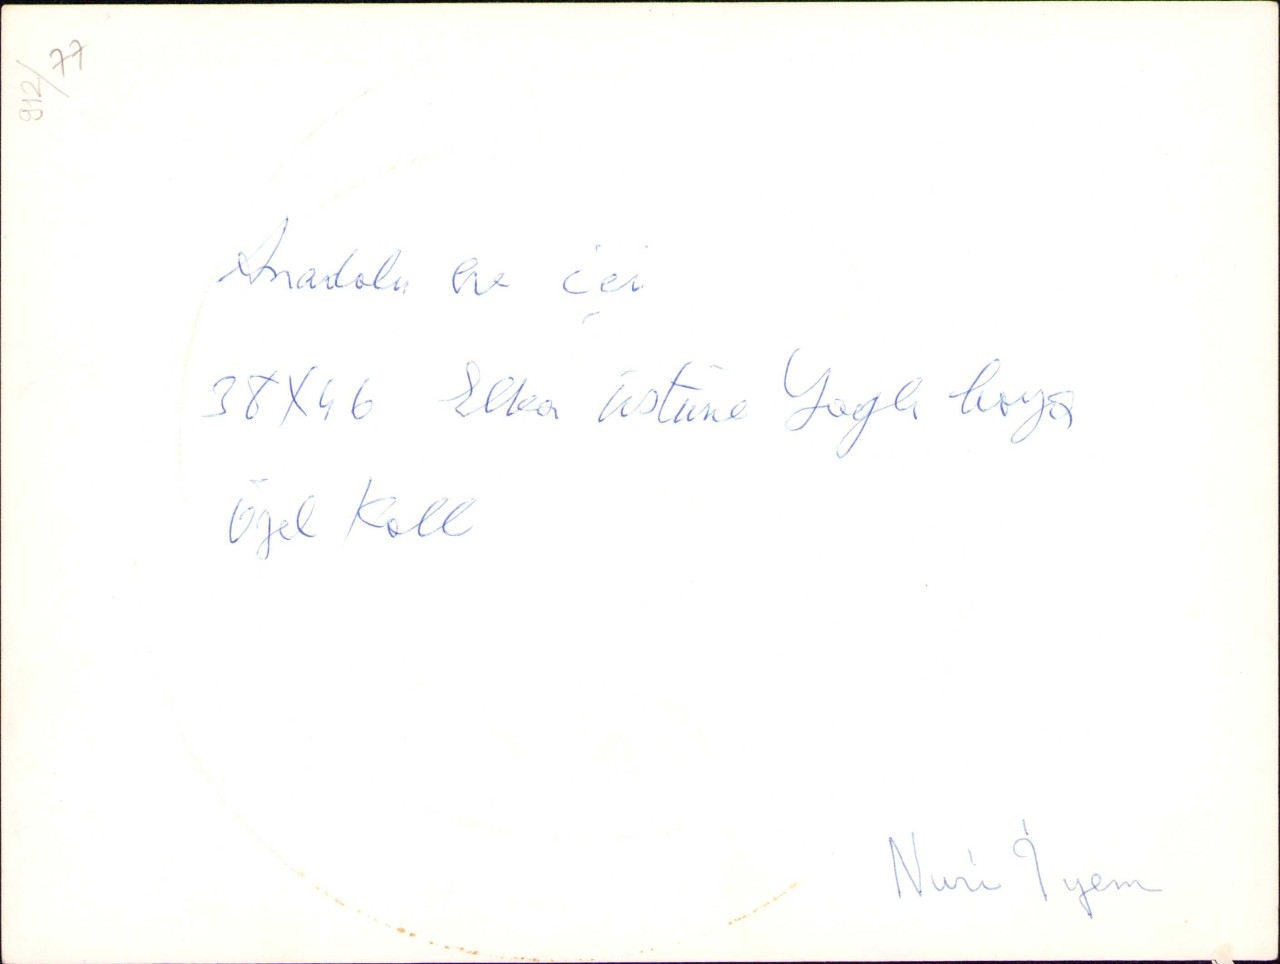 912/77
Anadolu eve içi
38X46 Elka üstüne Yağlı boya
Özel Koll
Nuri İyem